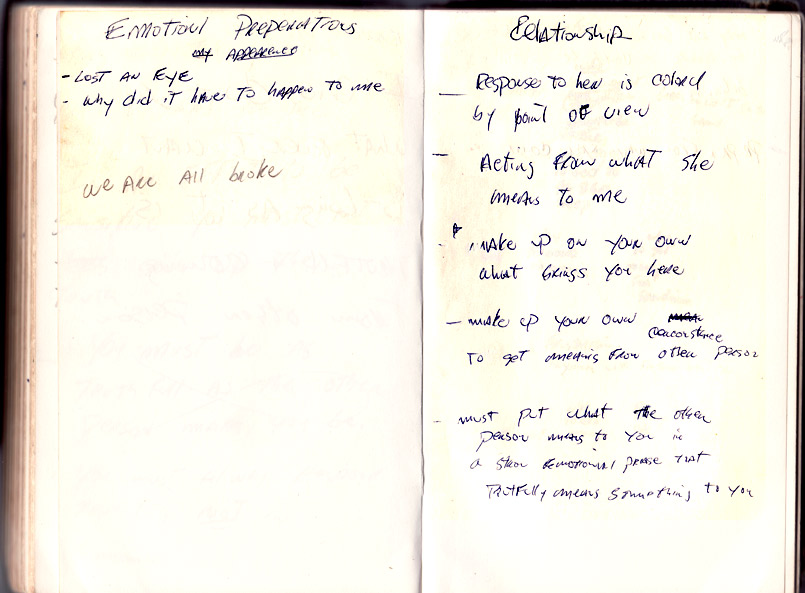 Emotional Preperations
my Appearence
- Lost an Eye
- why did it have to happen to me
we are all broke
Relationship
— Response to her is colord
by point of view
— Acting from what she
means to me
- make up on your own
what brings you here
— make up your own
to get meaning from other person
- must put what the other
person means to you in
a stron Eemotional phrase that
truthfully means something to you